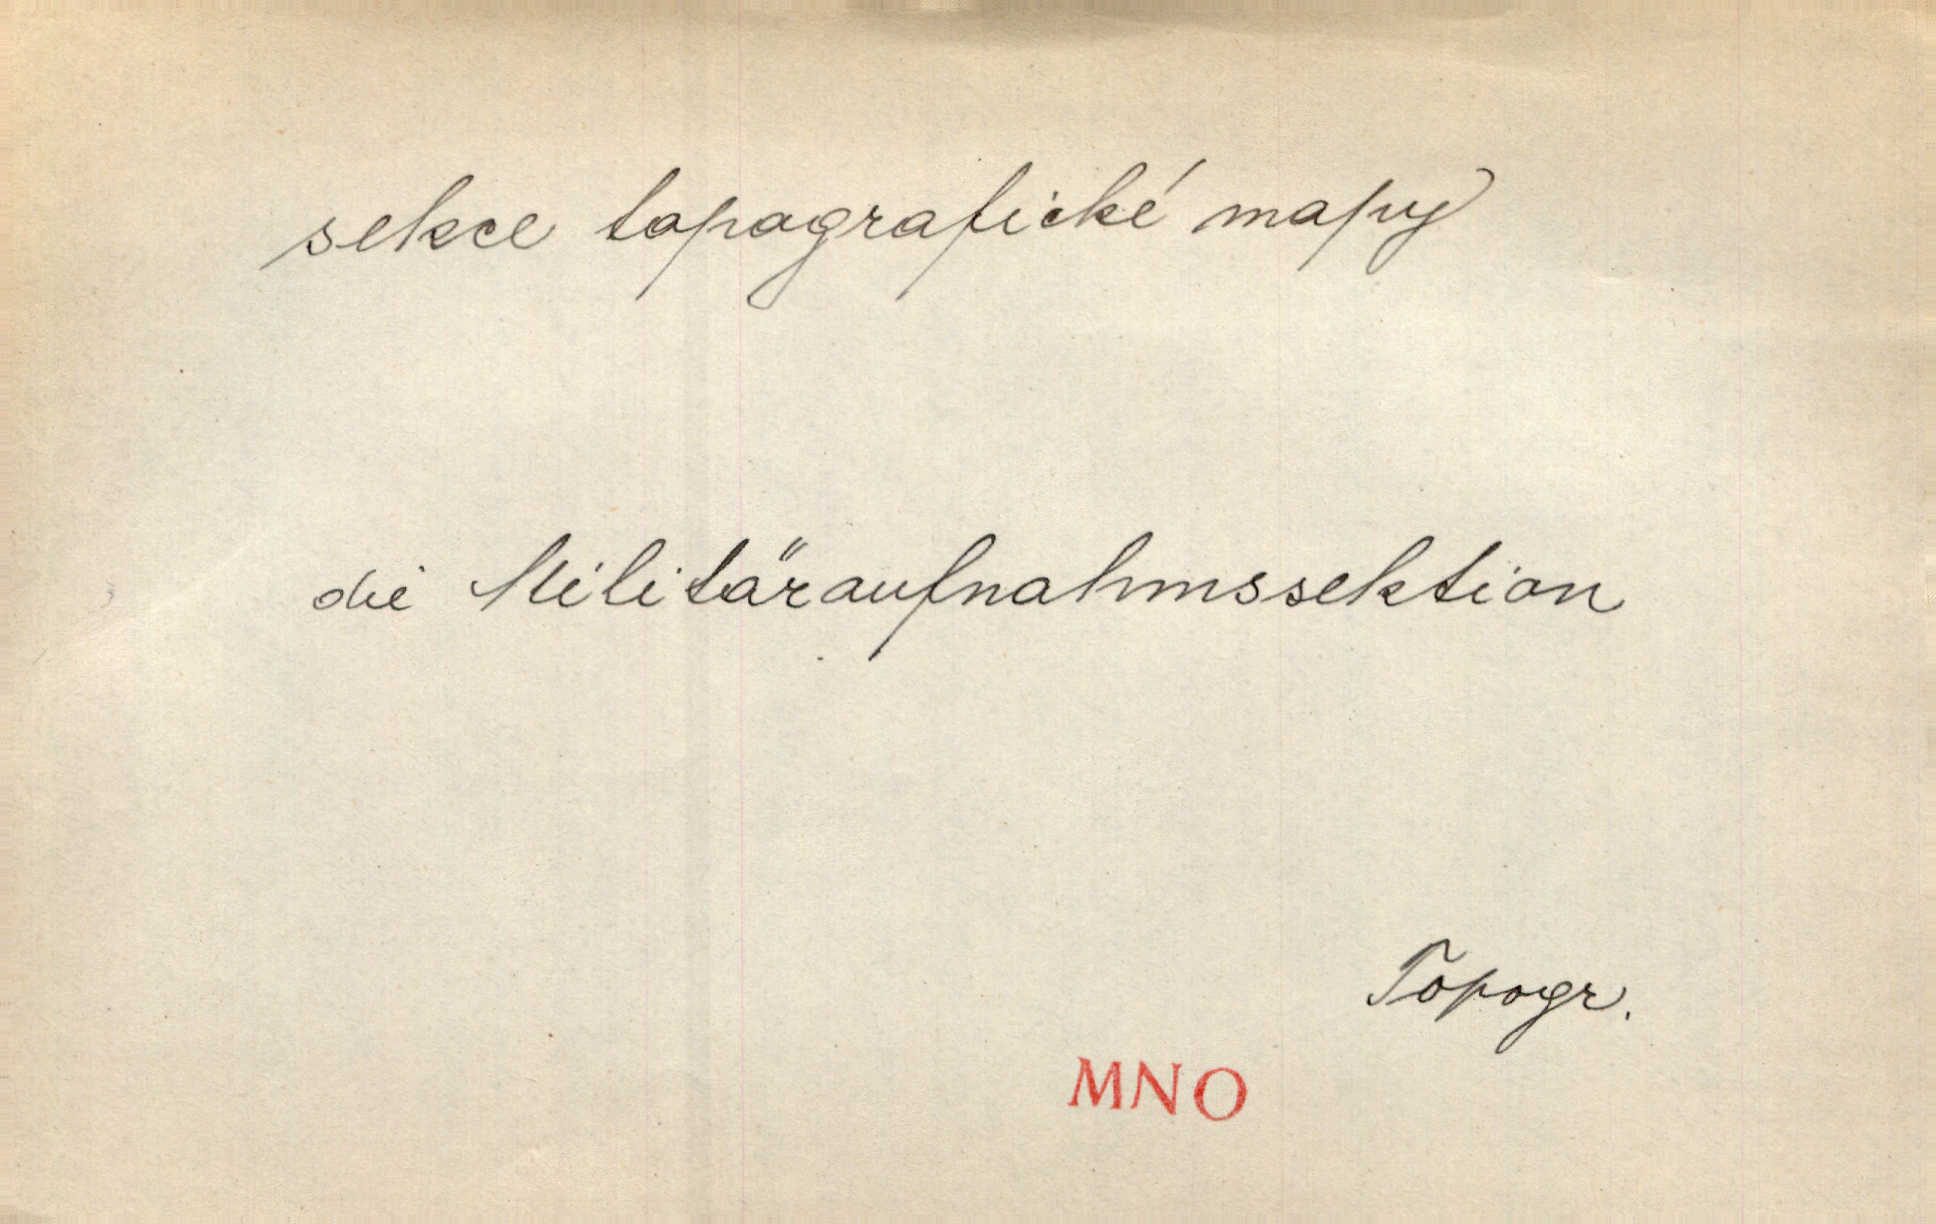 sekce topografické mapy
die Militäraufnahmssektion
Topogr.
MNO